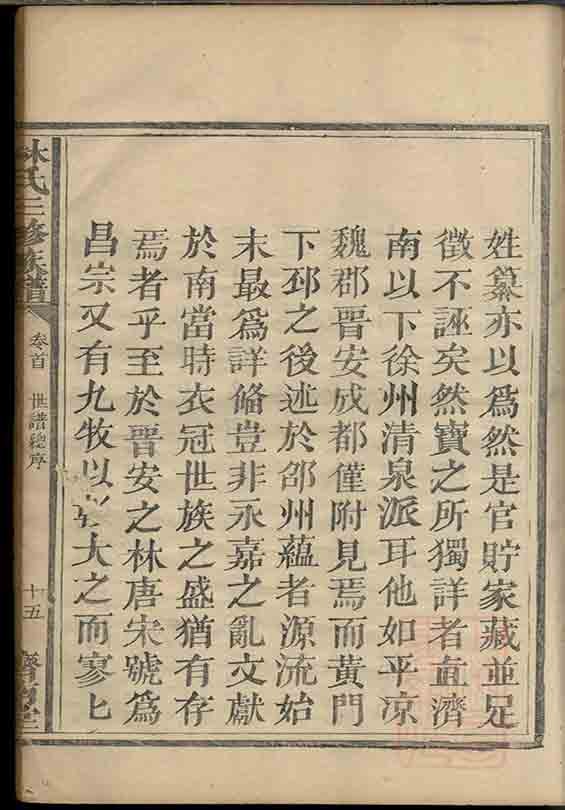 姓纂亦以爲然是官貯家藏並足
徵不誣矣然寶之所獨詳者直濟
南以下徐州清泉派耳他如平凉
魏郡晋安成都僅附見焉而黃門
下邳之後述於邵州蘊者源流始
末最爲詳俻豈非永嘉之亂文獻
於南當時衣冠世族之盛猶有存
焉者乎至於晋安之林唐宋號爲
昌宗又有九牧以大之而寥匕
林氏三修族譜
卷首 世譜總序
十五